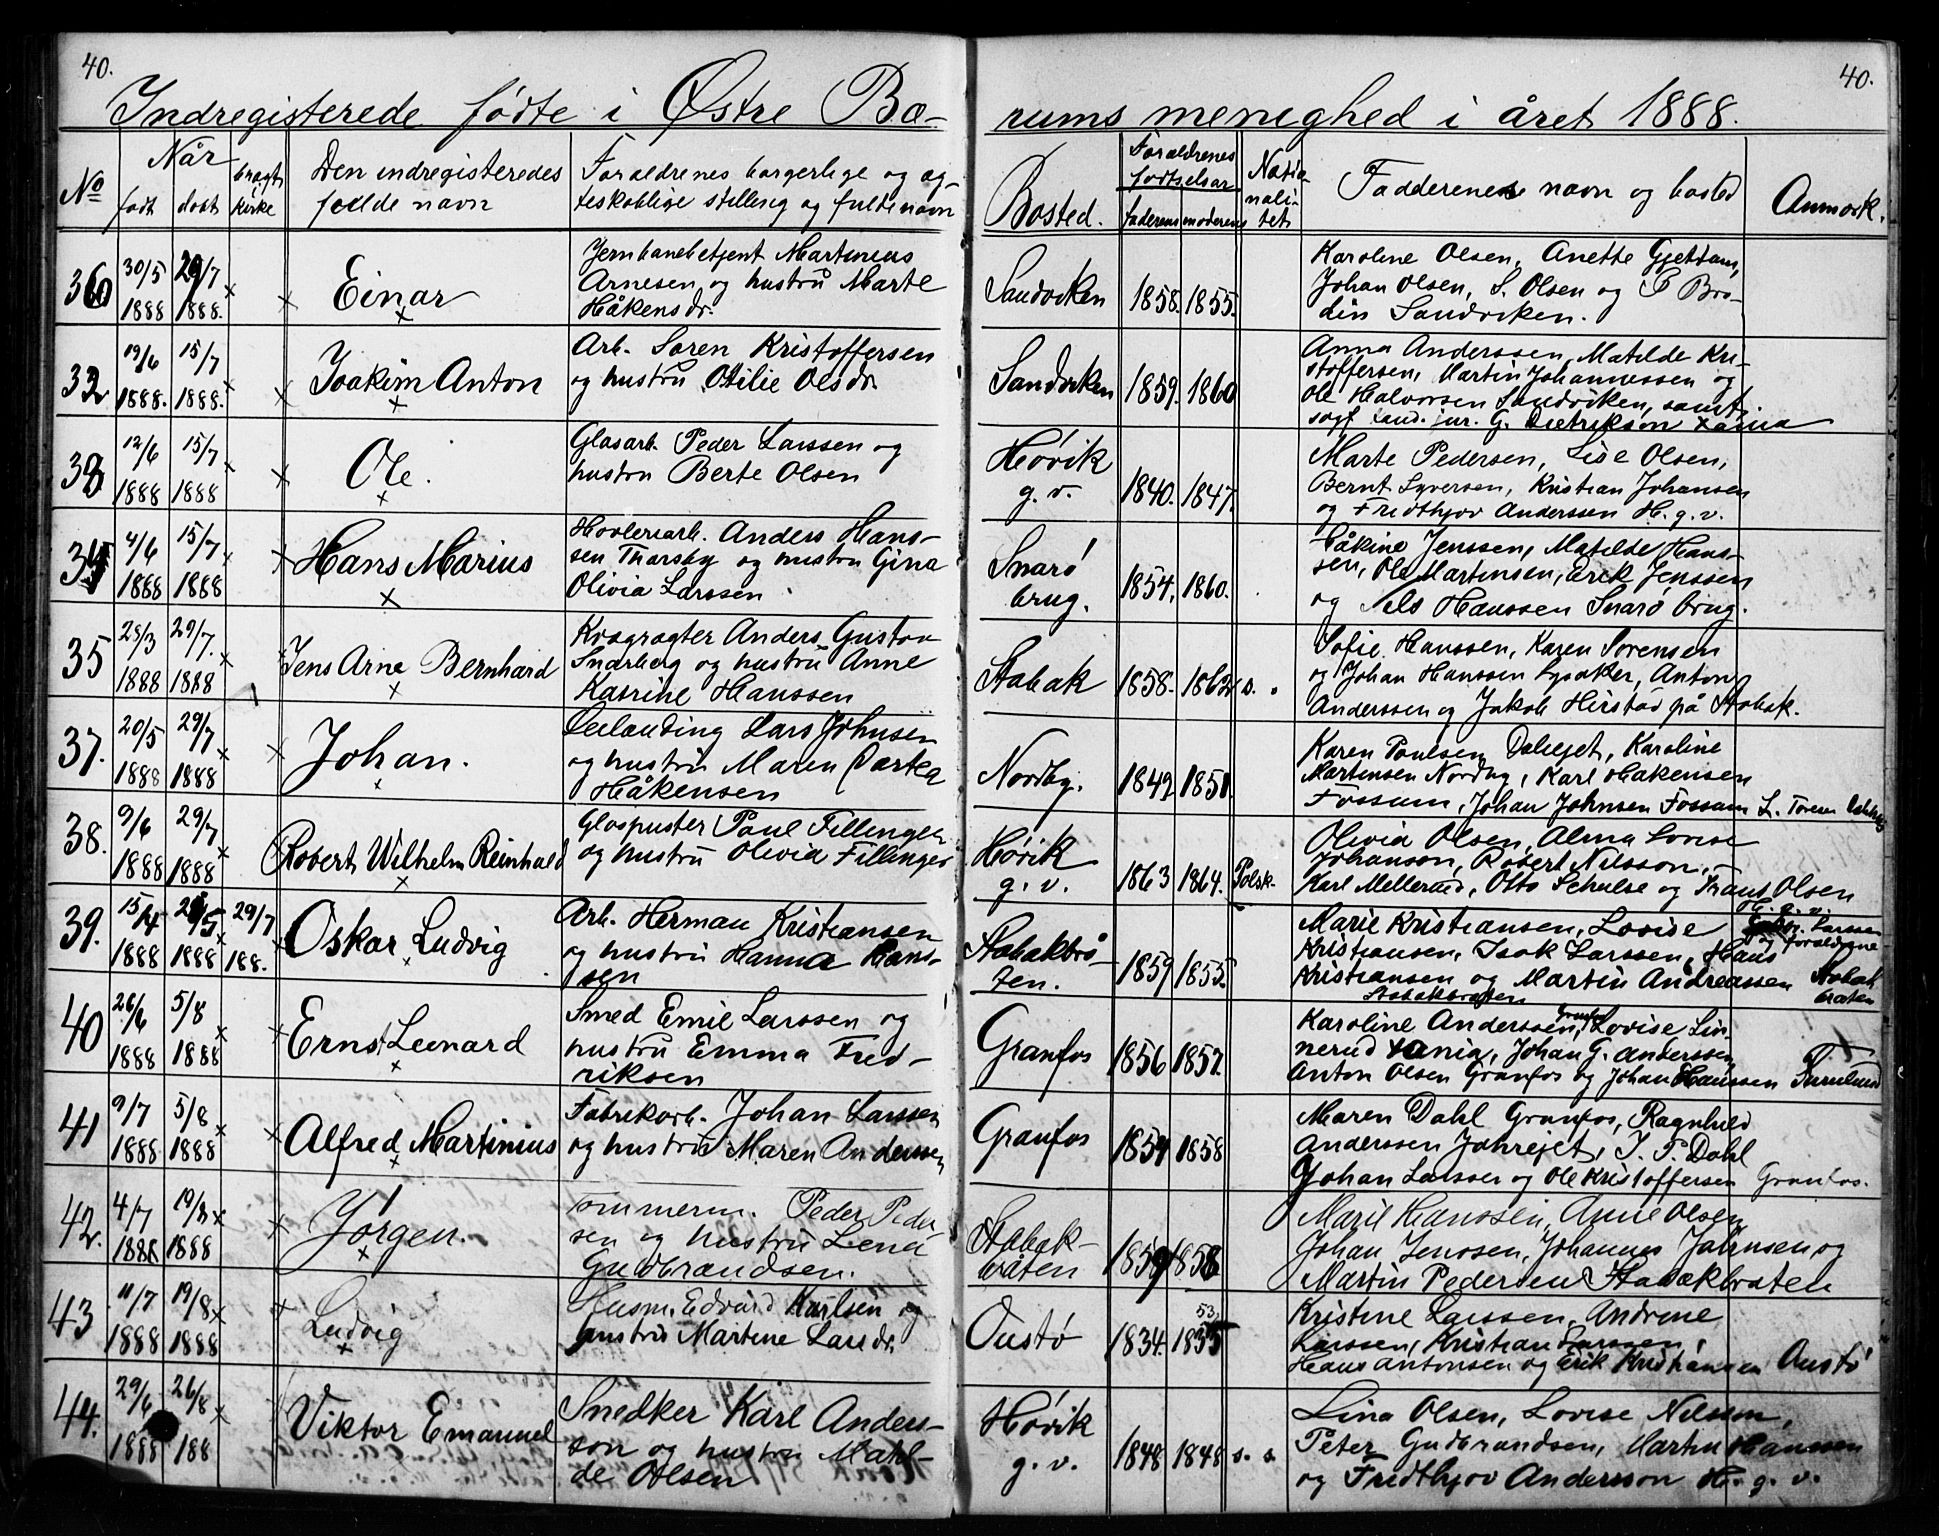 40.
40.
Indregisterede fødte i Østre Bæ-
rums menighed i året 1888.
No
Når
født
døbt
bragt kirke
Den indregisteredes
fulde navn
Forældrenes borgerlige og æg-
teskablige stilling og fulde navn
Bosted.
Forældrenes
fødselsår
faderens
moderens
Natio-
nali-
tet
Faddernes navn og bosted
Anmærk.
36 30/5 1888 29/7 1888. Einar
Jernbanebetjent Martinius
Arnesen og hustru Marte
Håkensdr.
Sandviken 1858. 1855.
Karoline Olsen, Anette Gjettum,
Johan Olsen, S. Olsen og P Bro-
din Sandviken.
32 19/6 1888. 15/7 1888. Joakim Anton
Arb. Søren Kristoffersen
og hustru Otilie Olsdr.
Sandviken 1859. 1860
Anna Anderssen, Matilde Kri-
stoffersen, Martin Johannessen og
Ole Halvorsen Sandviken, samt
sogf. cand. jur. G. Dietrikson
33 12/6 1888 15/7 1888 Ole.
Glasarb. Peder Larssen og
hustru Berte Olsen
Høvik
g. v. 1840. 1847.
Marte Pedersen, Lise Olsen,
Bernt Syversen, Kristian Johansen
og Fredthjov Anderssen H. g. v.
34 4/6 1888 15/7 1888 Hans Marius
Høvleriarb. Anders Hans-
sen Thorsby og hustru Gina
Olivia Larssen
Snarø
brug. 1854. 1860.
Håkine Jenssen, Matilde Hans-
sen, Ole Martinsen, Erik Jenssen
og Nels Hanssen Snarø brug.
35 28/3 1888 29/7. 1888 Jens Arne Bernhard
Kvægrøgter Anders Gustav
Snarberg og hustru Anne
Katrine Hanssen
Stabak 1858. 1862 s.
Sofie Hanssen, Karen Sørensen
og Johan Hanssen Lysaker, Anton
Anderssen og Jakob Hirstad på Stabak.
37. 20/5 1888 29/7 1888 Johan.
Leilending Lars Johnsen
og hustru Maren Dortea
Håkensen
Nordby. 1849 1851.
Karen Paulsen Dalejet, Karoline
Martensen Nordby, Karl Håkensen
Fossum, Johan Johnsen Fossum L. Toresen
38. 9/6 1888 29/7 1888 Robert Wilhelm Reinhold
Glaspuster Paul Fillinger
og hustru Olivia Fillinger
Høvik
g. v. 1863 1864. Polsk.
Olivia Olsen, Alma Lovise
Johanson, Robert Nilsson,
Karl Mellerud, Otto Schulse og Frans Olsen
H. g. v.
39. 15/4 1888 5 1888 29/7 188. Oskar Ludvig
Arb. Herman Kristiansen
og hustru Hanna Hans-
sen
Stabakbrå-
ten. 1859 1855.
Marie Kristiansen, Lovise Larssen
Kristiansen, Isak Larssen, Hans og forældrene
Kristiansen og Martin Andreassen Stabak
Stabakbråten bråten
40 26/6 1888 5/8 1888 Ernst Leonard
Smed Emil Larssen og
hustru Emma Fred-
riksen
Granfos 1856 1857.
Karoline Anderssen, Granfos Lovise Lin-
nerud, Johan G. Anderssen,
Anton Olsen Granfos og Johan Hanssen
41 9/7 1888 5/8 1888 Alfred Martinius
Fabrikarb. Johan Larssen
og hustru Maren Anderssen
Granfos 1854 1858
Maren Dahl Granfos, Ragnhild
Anderssen Jarrejet, I. P. Dahl
Johan Larssen og Ole Kristoffersen Granfos.
42. 4/7 1888 19/8 1888 Jørgen.
Tømmerm. Peder Peder-
sen og hustru Lena
Gudbrandsen.
Stabak-
bråten 1859 1858
Marie Hanssen, Anne Olsen,
Johan Jenssen, Johannes Johnsen og
Martin Pedersen Stabækbråten
43 11/7 1888 19/8 1888 Ludvig
Husm. Edvard Karlsen og
hustru Martine Larsdr.
Oustø 1834. 53. 1855
Kristine Larssen, Andrine
Larssen, Kristian Larssen,
Hans Antonsen og Erik Kristiansen Oustø
44. 29/6 1888 26/8 188 Viktor Emanuel
Snedker Karl Anders-
son og hustru Matil-
de Olsen
Høvik
g. v. 1848 1848 s. s.
Lina Olsen, Lovise Nilsson,
Peter Gudbrandsen, Martin Hanssen
og Fredthjov Andersson H. g. v.